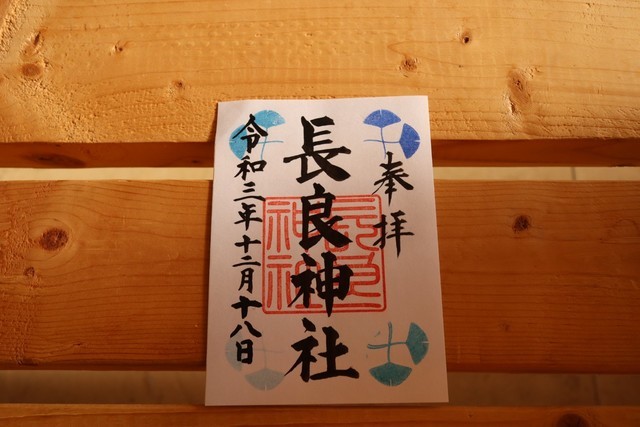 奉拝
長良神社
長良神社
令和三年十二月十八日